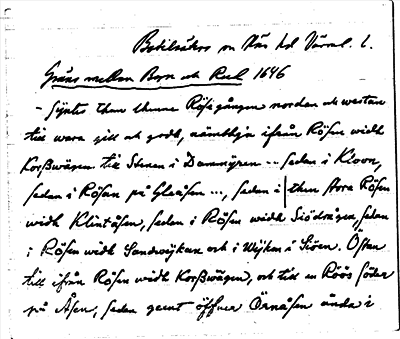 Botilsäter sn Näs hd Värml. l.
Gräns mellan Byn och Rud 1646
- Syntes them thenne Rösegången nordan och westan
till wara gill och godh, nämblign ifrån Rösen widh
Korßwägen till Stenen i Dammyren .. sedan i Kloen,
sedan i Rösen på Gleåsen ..., sedan i then stora Rösen
widh Klintåsen, sedan i Rösen widh Siödrågen, sedan
i Rösen widh Sandwijkan och i Wijken i Siöen. Östan
till ifrån Rösen widh Korßwägen, och till en Röös söder
på Åsen, sedan gent öffuer Örnåsen ända i